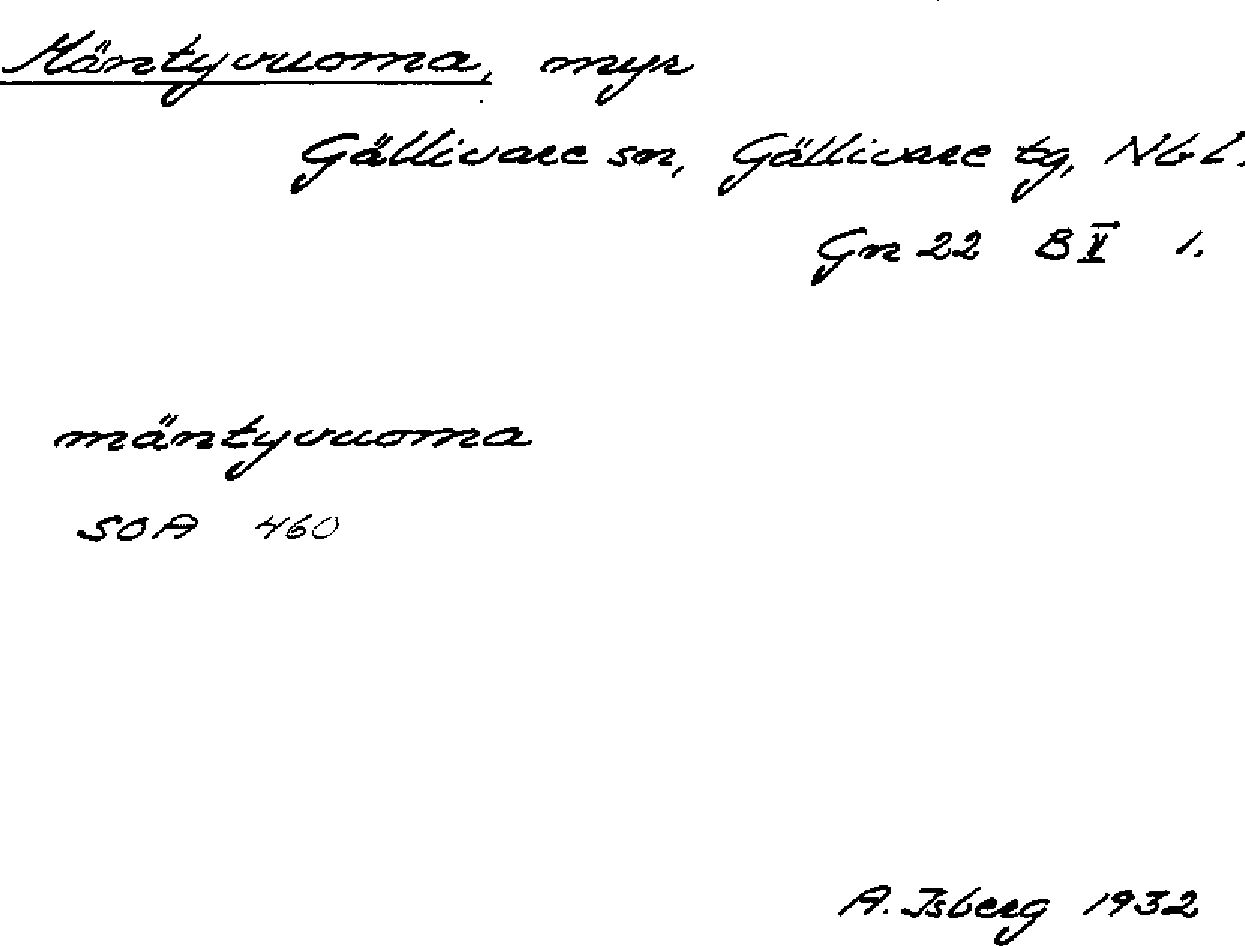 Mäntyvuoma, myr
Gällivare sn, Gällivare tg, Nb l.
Gn 22 B V 1.
mäntyvuoma
SOA 460
A. Isberg 1932